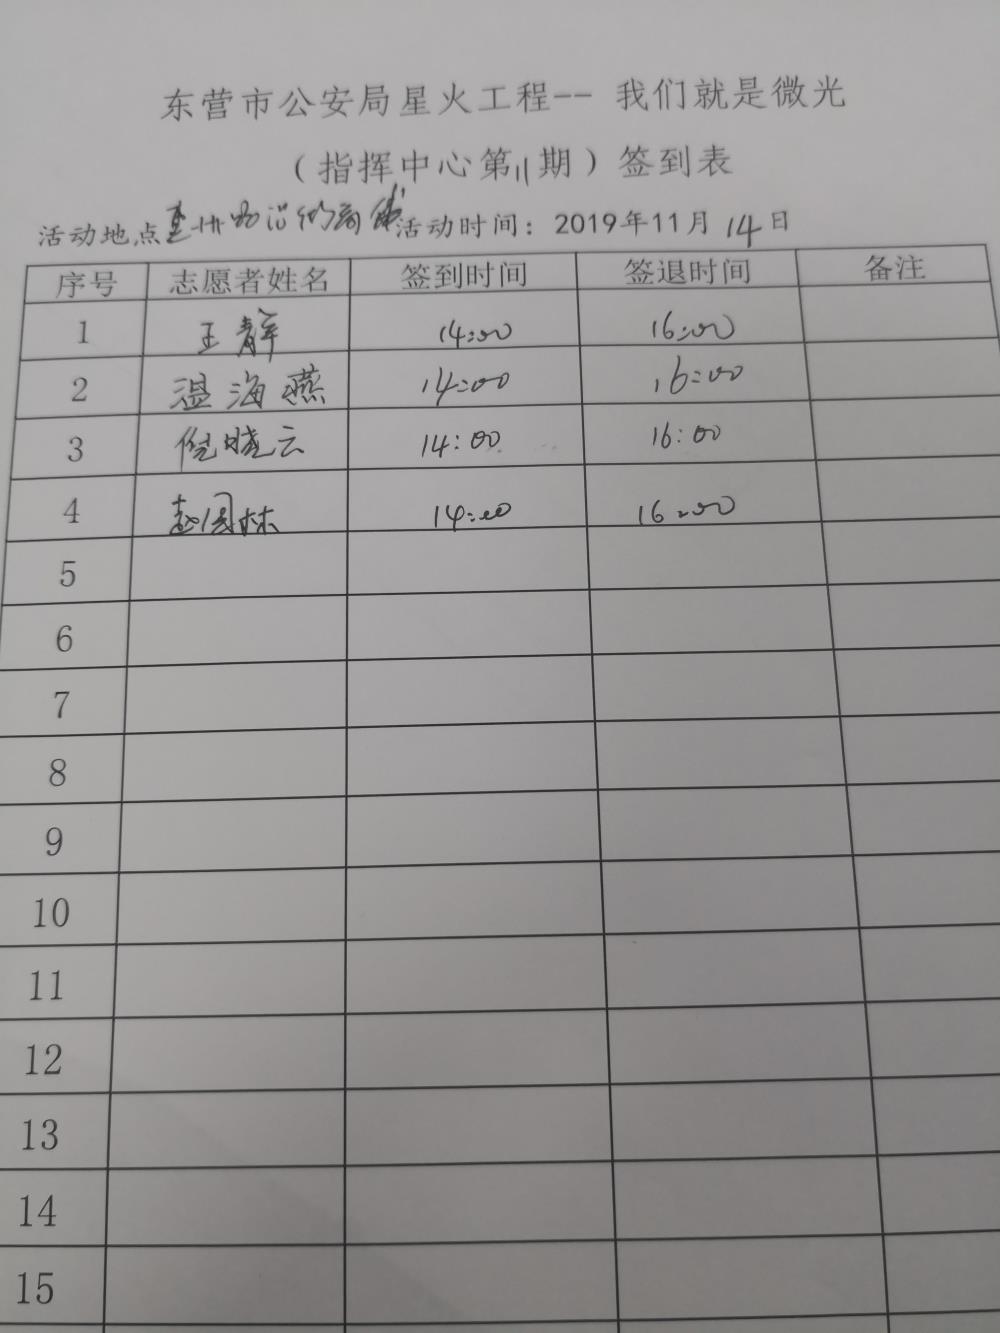 东营市公安局星火工程-- 我们就是微光
（指挥中心第11期）签到表
活动地点 路沿街商 活动时间：2019年11月14日
序号 志愿者姓名 签到时间 签退时间 备注
1 王静 14:00 16:00
2 温海燕 14:00 16:00
3 倪晓云 14:00 16:00
4 赵国林 14:00 16:00
5
6
7
8
9
10
11
12
13
14
15